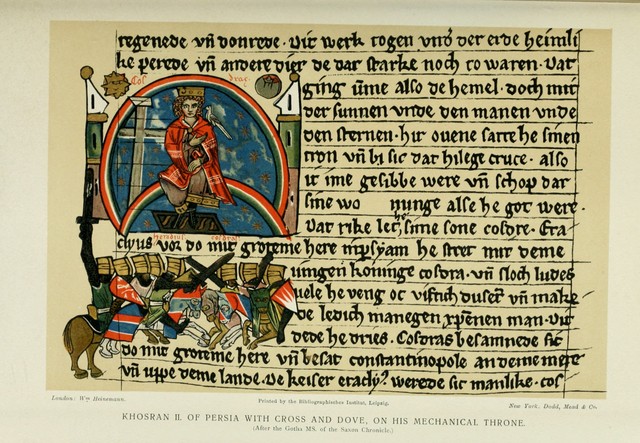 regenede vn̄ donrede. Dit werk togen vnd̓ der erde heimli
ke perede vn̄ andere dier de dar starke noch to waren. Dat
Cos drac
ging v̄me also de hemel. doch mit
der sunnen vnde den manen vnde
den sternen. hir ouene satte he sinen
tron vn̄ bi sic dat hilege cruce. also
it ime gesibbe were vn̄ schop dat
sine wo nunge alse he got were.
Dat rike let sime sone cosdre. Era
clyus vor do mit groteme here in psyam he stret mit deme
Heraclius cosdras
iungen koninge cosdra. vn̄ sloch ludes
uele he veng oc viftich dusent vn̄ make
de ledich manegen xp̄enen man. Dit
dede he dries. Cosdras besamnede sic
do mit groteme here vn̄ besat constantinopole an deme mere
vn̄ uppe deme lande. De keiser eracly9 werede sic manlike. cos
London: Wm Heinemann.
Printed by the Bibliographisches Institut, Leipzig.
New York. Dodd, Mead & Co.
KHOSRAN II. OF PERSIA WITH CROSS AND DOVE, ON HIS MECHANICAL THRONE.
(After the Gotha MS. of the Saxon Chronicle.)